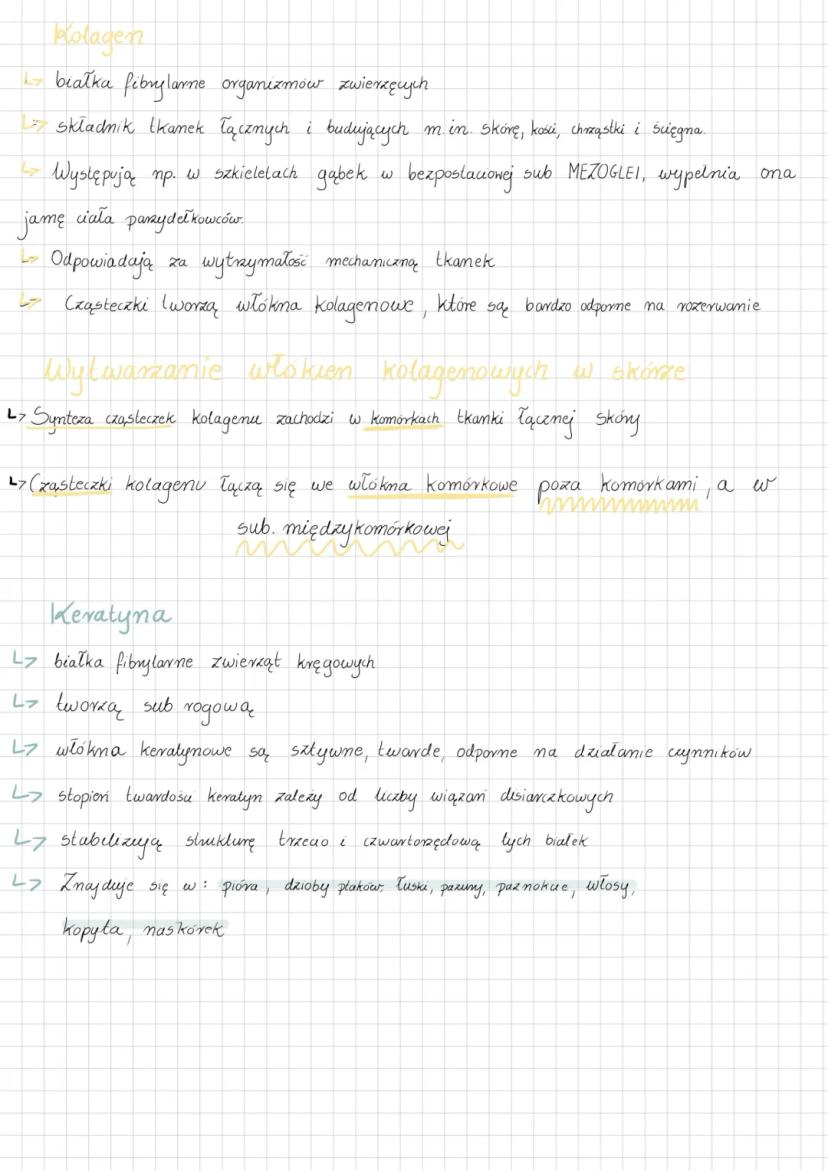 Kolagen
↳ białka fibrylarne organizmów zwierzęcych
↳ składnik tkanek łącznych i budujących m.in. skórę, kości, chrząstki i ścięgna.
↳ Występują np. w szkieletach gąbek w bezpostaciowej sub MEZOGLEI, wypełnia ona
jamę ciała parzydełkowców.
↳ Odpowiadają za wytrzymałość mechaniczną tkanek
↳ Cząsteczki tworzą włókna kolagenowe, które są bardzo odporne na rozerwanie
Wytwarzanie włókien kolagenowych w skórze
↳ Synteza cząsteczek kolagenu zachodzi w komórkach tkanki łącznej skóry
↳ Cząsteczki kolagenu łączą się we włókna komórkowe poza komórkami, a w
sub. międzykomórkowej
Keratyna
↳ białka fibrylarne zwierząt kręgowych
↳ tworzą sub rogową
↳ włókna keratynowe są sztywne, twarde, odporne na działanie czynników
↳ stopień twardości keratyn zależy od liczby wiązań disiarczkowych
↳ stabilizują strukturę trzecio i czwartorzędową tych białek
↳ Znajduje się w: pióra, dzioby ptaków, łuski, pazury, paznokcie, włosy,
kopyta, naskórek